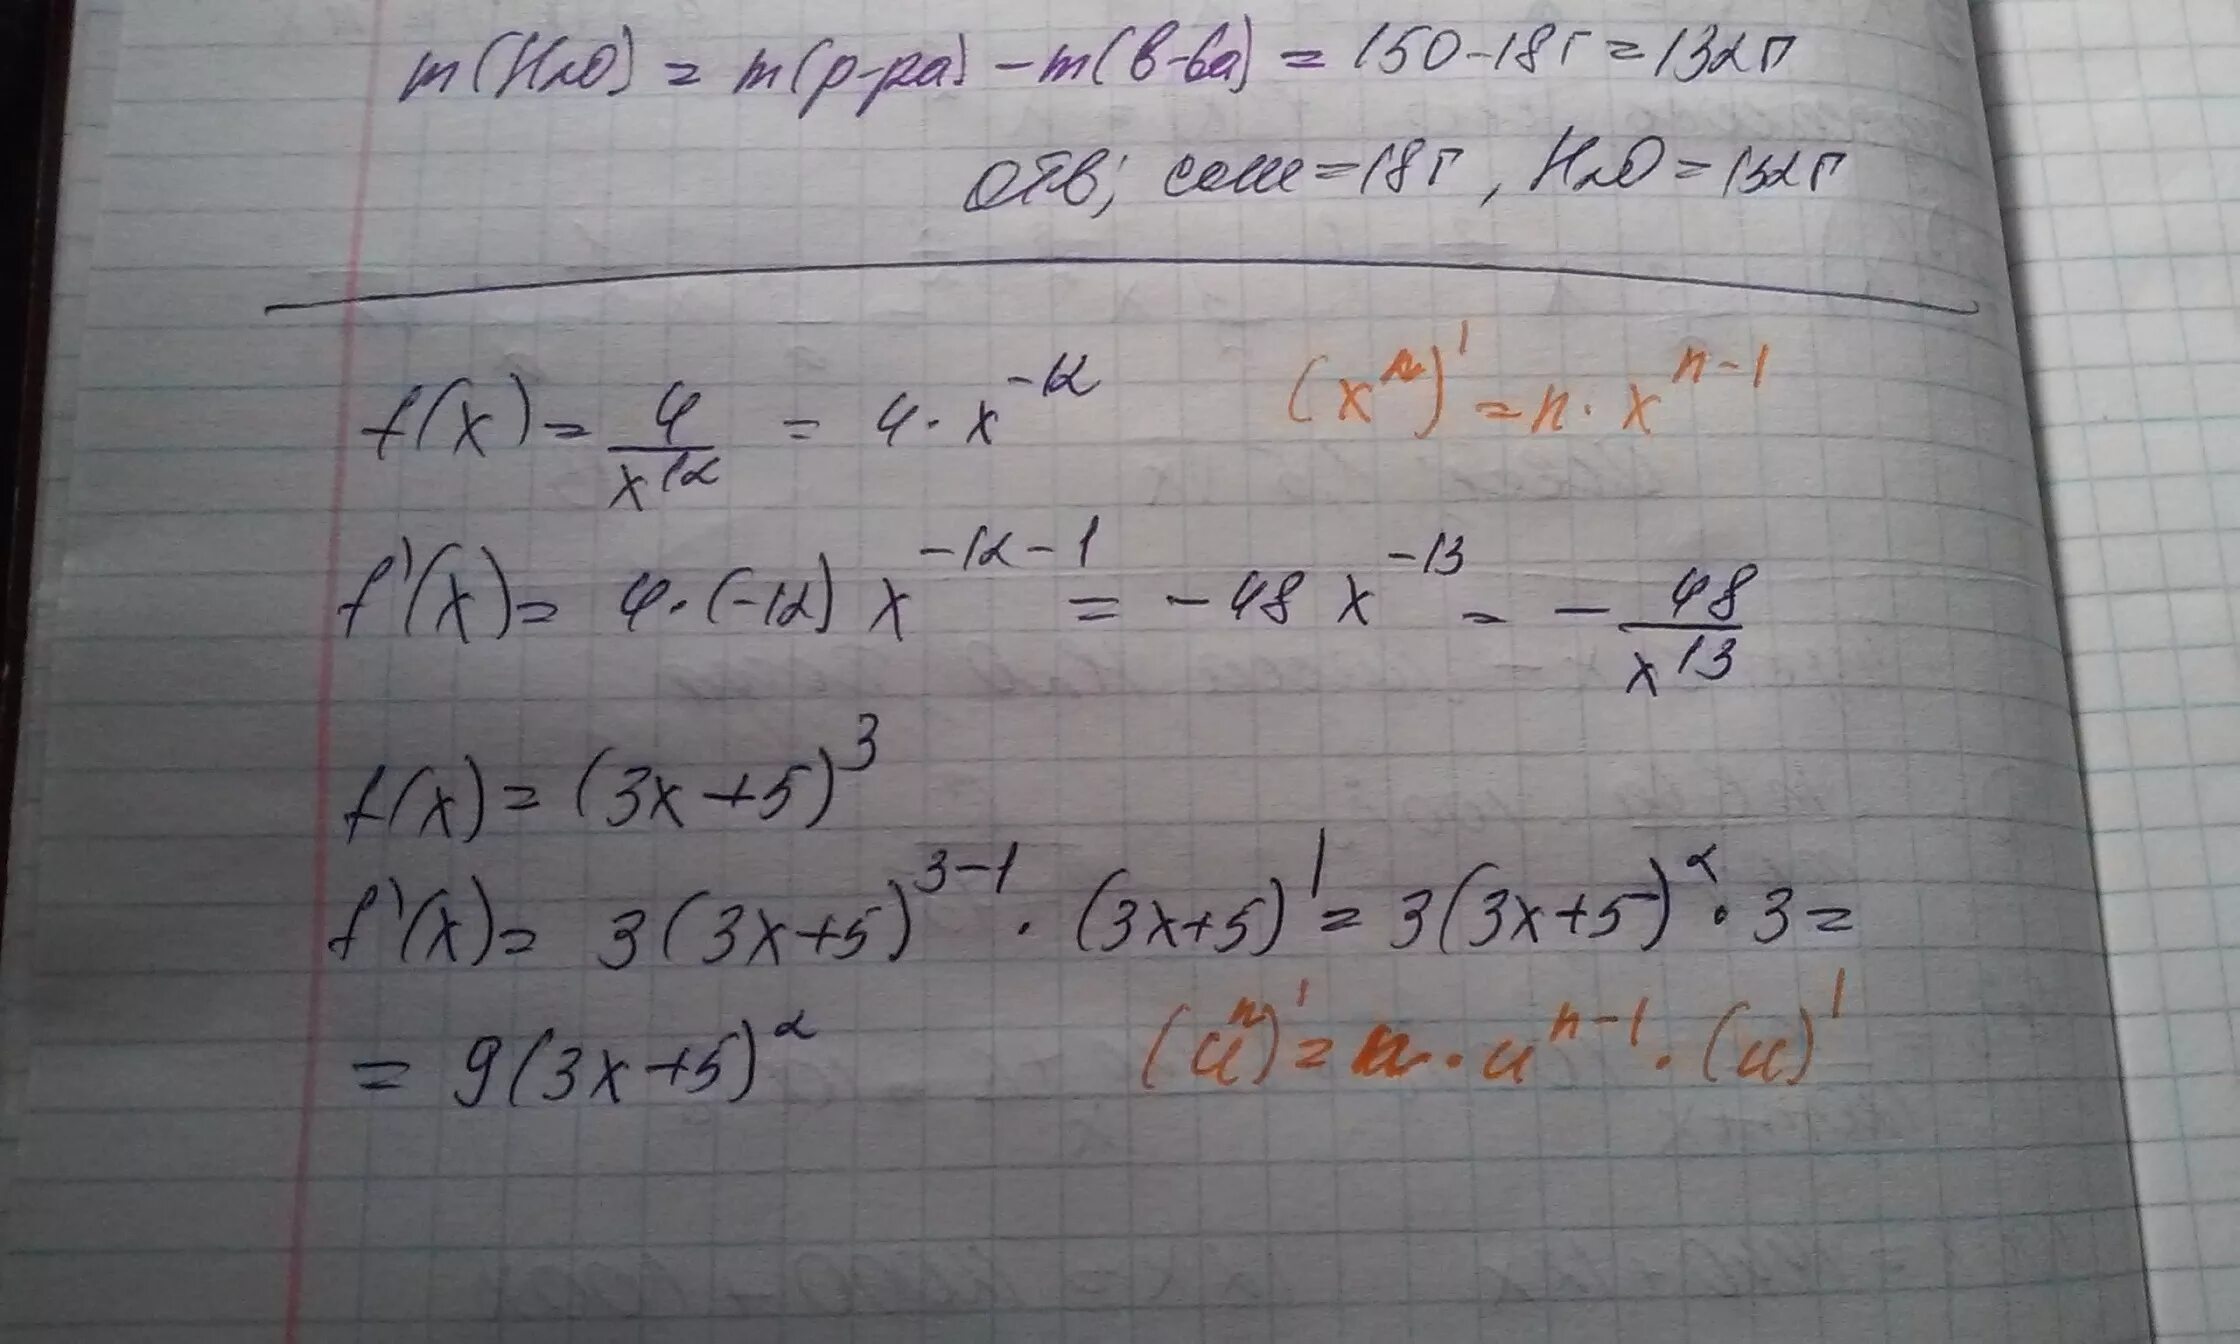 m(H₂O) = m(р-ра) - m(в-ва) = 150-18г = 132г
ОТВ; соли = 18г, H₂O = 132г
f(x) = 4/x¹² = 4 · x⁻¹²
(xⁿ)' = n · xⁿ⁻¹
f'(x) = 4 · (-12) x⁻¹²⁻¹ = -48 x⁻¹³ = - 48/x¹³
f(x) = (3x+5)³
f'(x) = 3(3x+5)³⁻¹ · (3x+5)' = 3(3x+5)² · 3 =
= 9(3x+5)²
(uⁿ)' = n · uⁿ⁻¹ · (u)'